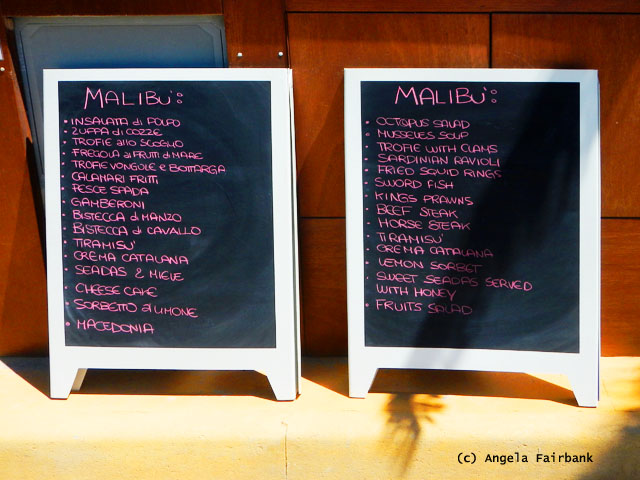 MALIBU':
• INSALATA di POLPO
• ZUPPA di COZZE
• TROFIE allo SCOGLIO
• FREGOLA ai FRUTTI di MARE
• TROFIE VONGOLE e BOTTARGA
• CALAMARI FRITTI
• PESCE SPADA
• GAMBERONI
• BISTECCA di MANZO
• BISTECCA di CAVALLO
• TIRAMISU'
• CREMA CATALANA
• SEADAS & MIELE
• CHEESE CAKE
• SORBETTO di LIMONE
• MACEDONIA
MALIBU':
• OCTOPUS SALAD
• MUSSELES SOUP
• TROFIE WITH CLAMS
• SARDINIAN RAVIOLI
• FRIED SQUID RINGS
• SWORD FISH
• KINGS PRAWNS
• BEEF STEAK
• HORSE STEAK
• TIRAMISU'
• CREMA CATALANA
• LEMON SORBET
• SWEET SEADAS SERVED
WITH HONEY
• FRUITS SALAD
(c) Angela Fairbank